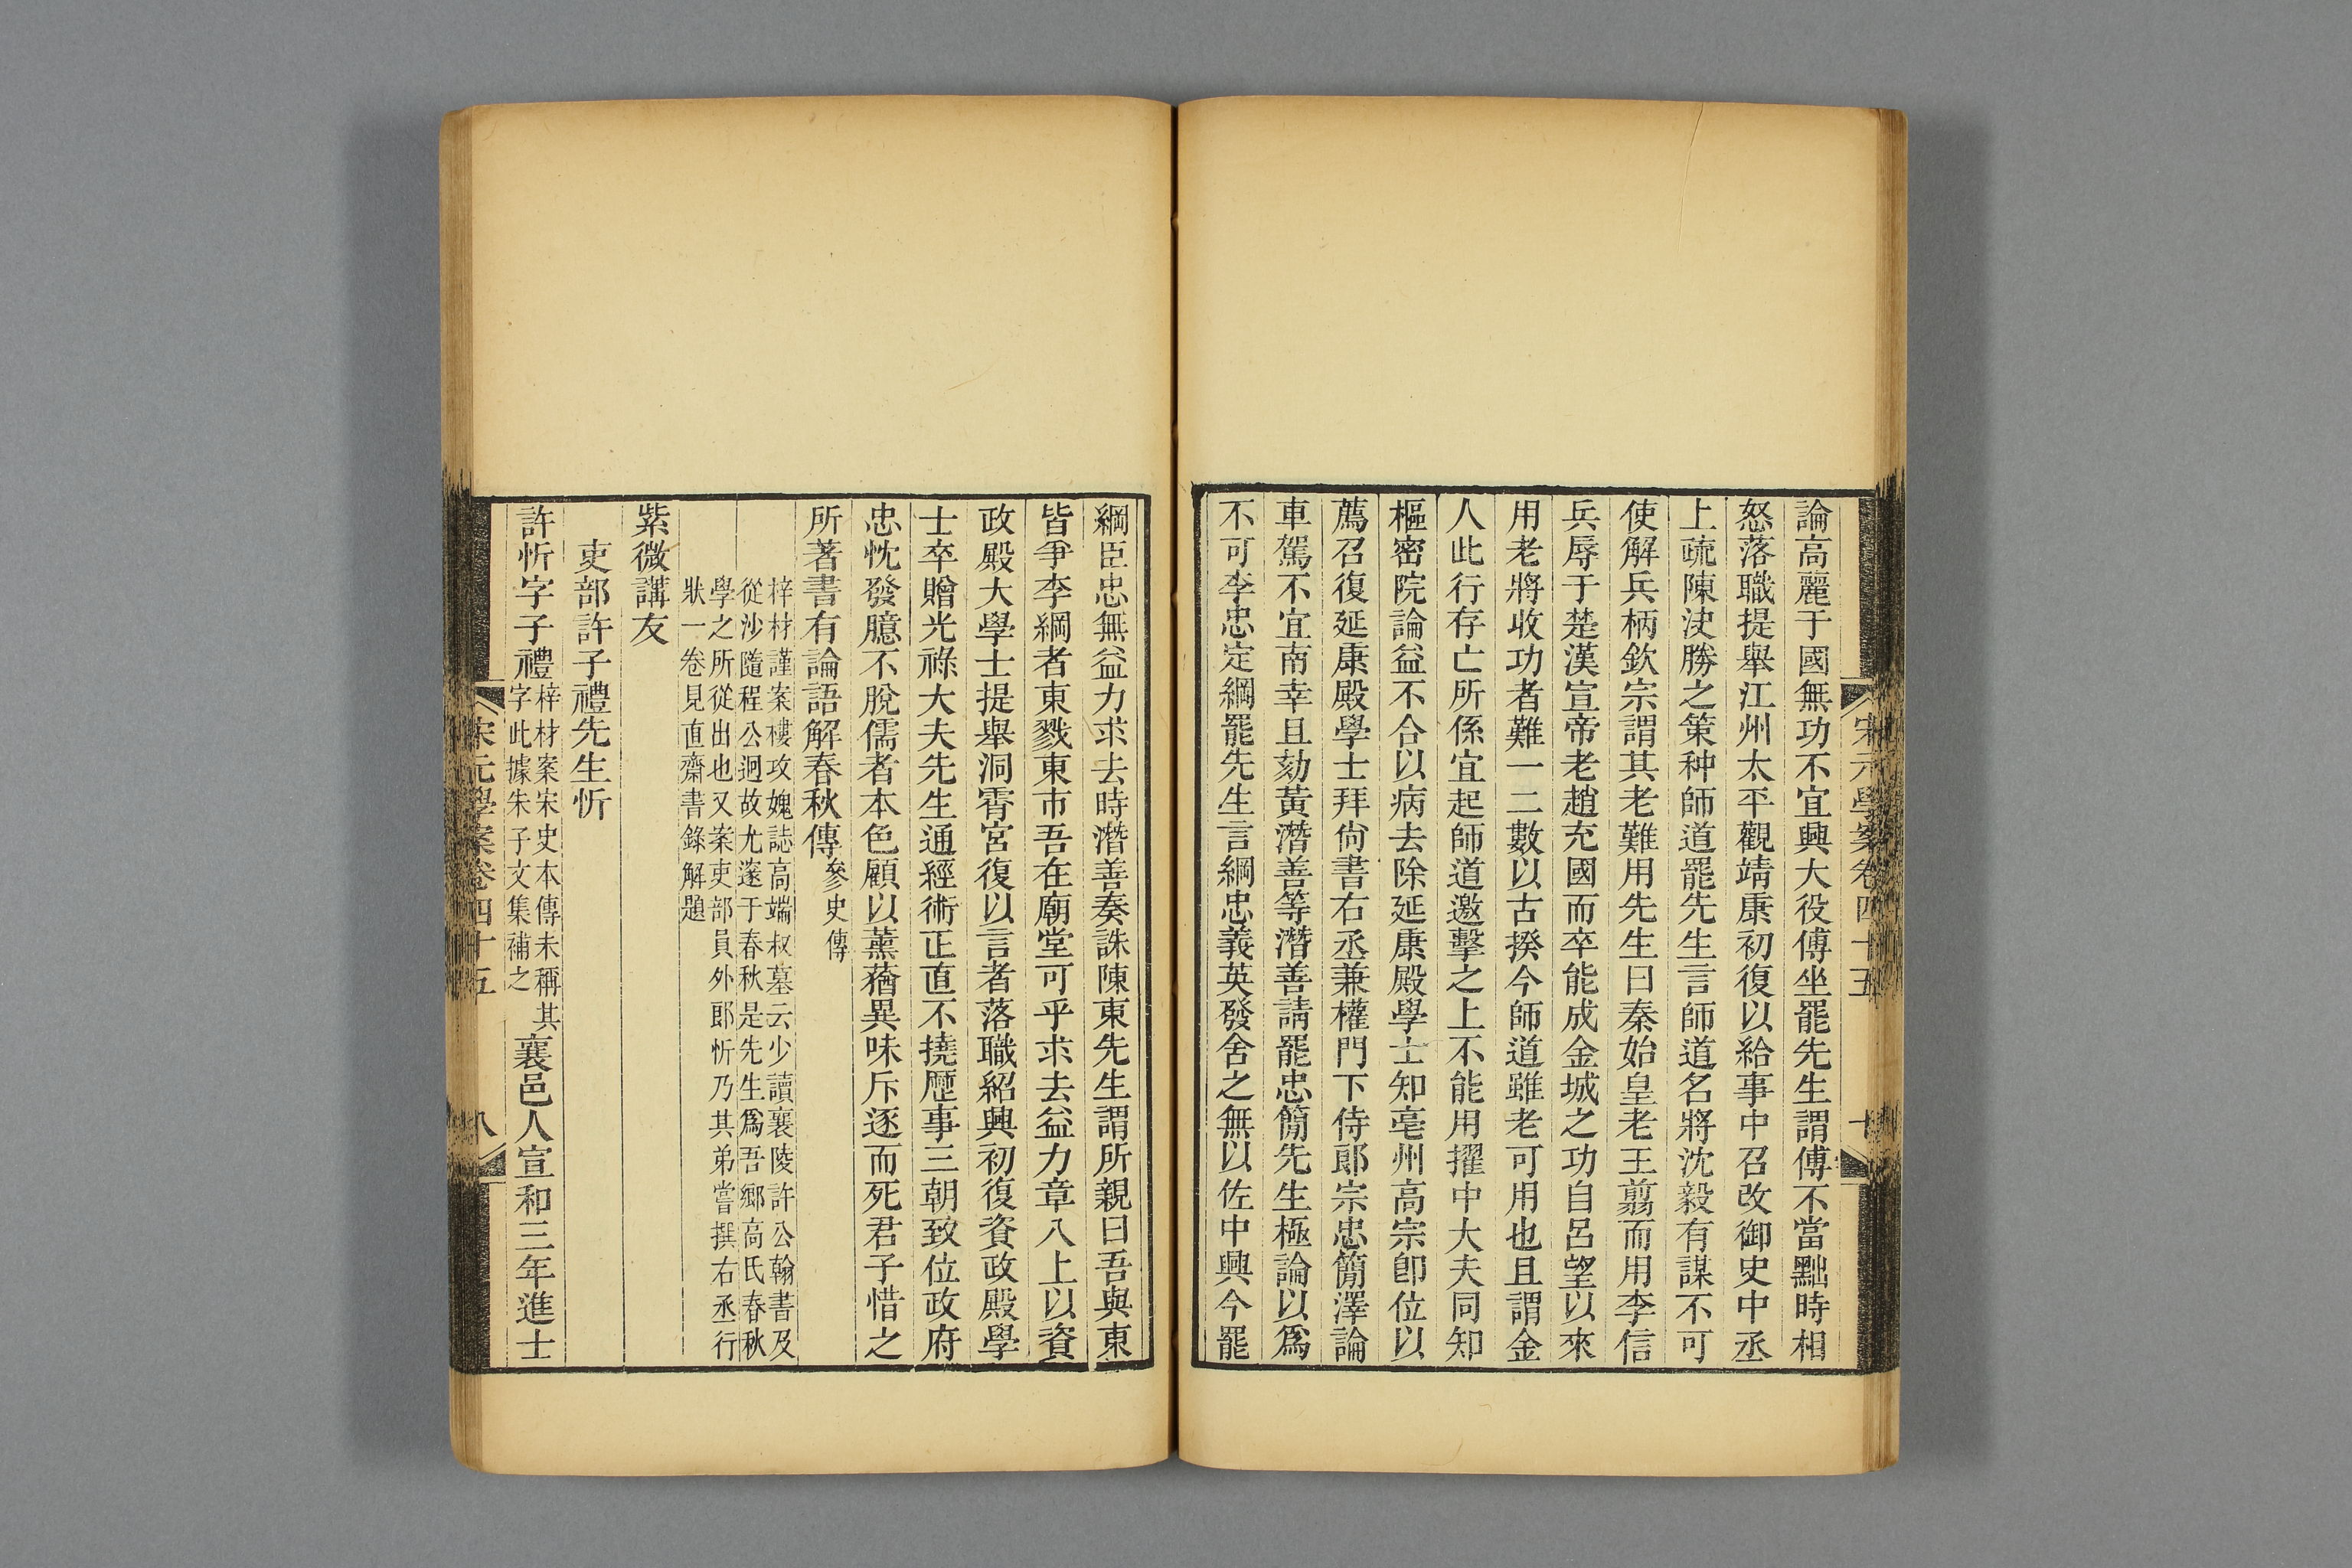 宋元學案卷四十五
論高麗于國無功不宜興大役傅坐罷先生謂傅不當黜時相
怒落職提舉江州太平觀靖康初復以給事中召改御史中丞
上疏陳決勝之策种師道罷先生言師道名將沈毅有謀不可
使解兵柄欽宗謂其老難用先生曰秦始皇老王翦而用李信
兵辱于楚漢宣帝老趙充國而卒能成金城之功自呂望以來
用老將收功者難一二數以古揆今師道雖老可用也且謂金
人此行存亡所係宜起師道邀擊之上不能用擢中大夫同知
樞密院論益不合以病去除延康殿學士知亳州高宗卽位以
薦召復延康殿學士拜尙書右丞兼權門下侍郎宗忠簡澤論
車駕不宜南幸且劾黃潛善等潛善請罷忠簡先生極論以爲
不可李忠定綱罷先生言綱忠義英發舍之無以佐中興今罷
綱臣忠無益力求去時潛善奏誅陳東先生謂所親曰吾與東
皆爭李綱者東戮東市吾在廟堂可乎求去益力章八上以資
政殿大學士提舉洞霄宮復以言者落職紹興初復資政殿學
士卒贈光祿大夫先生通經術正直不撓歷事三朝致位政府
忠忱發臆不脫儒者本色顧以薰蕕異味斥逐而死君子惜之
所著書有論語解春秋傳參史傳
梓材謹案樓攻媿誌高端叔墓云少讀襄陵許公翰書及
從沙隨程公迥故尤邃于春秋是先生爲吾鄉高氏春秋
學之所從出也又案吏部員外郎忻乃其弟嘗撰右丞行
狀一卷見直齋書錄解題
紫微講友
吏部許子禮先生忻
許忻字子禮梓材案宋史本傳未稱其字此據朱子文集補之襄邑人宣和三年進士
宋元學案卷四十五
八